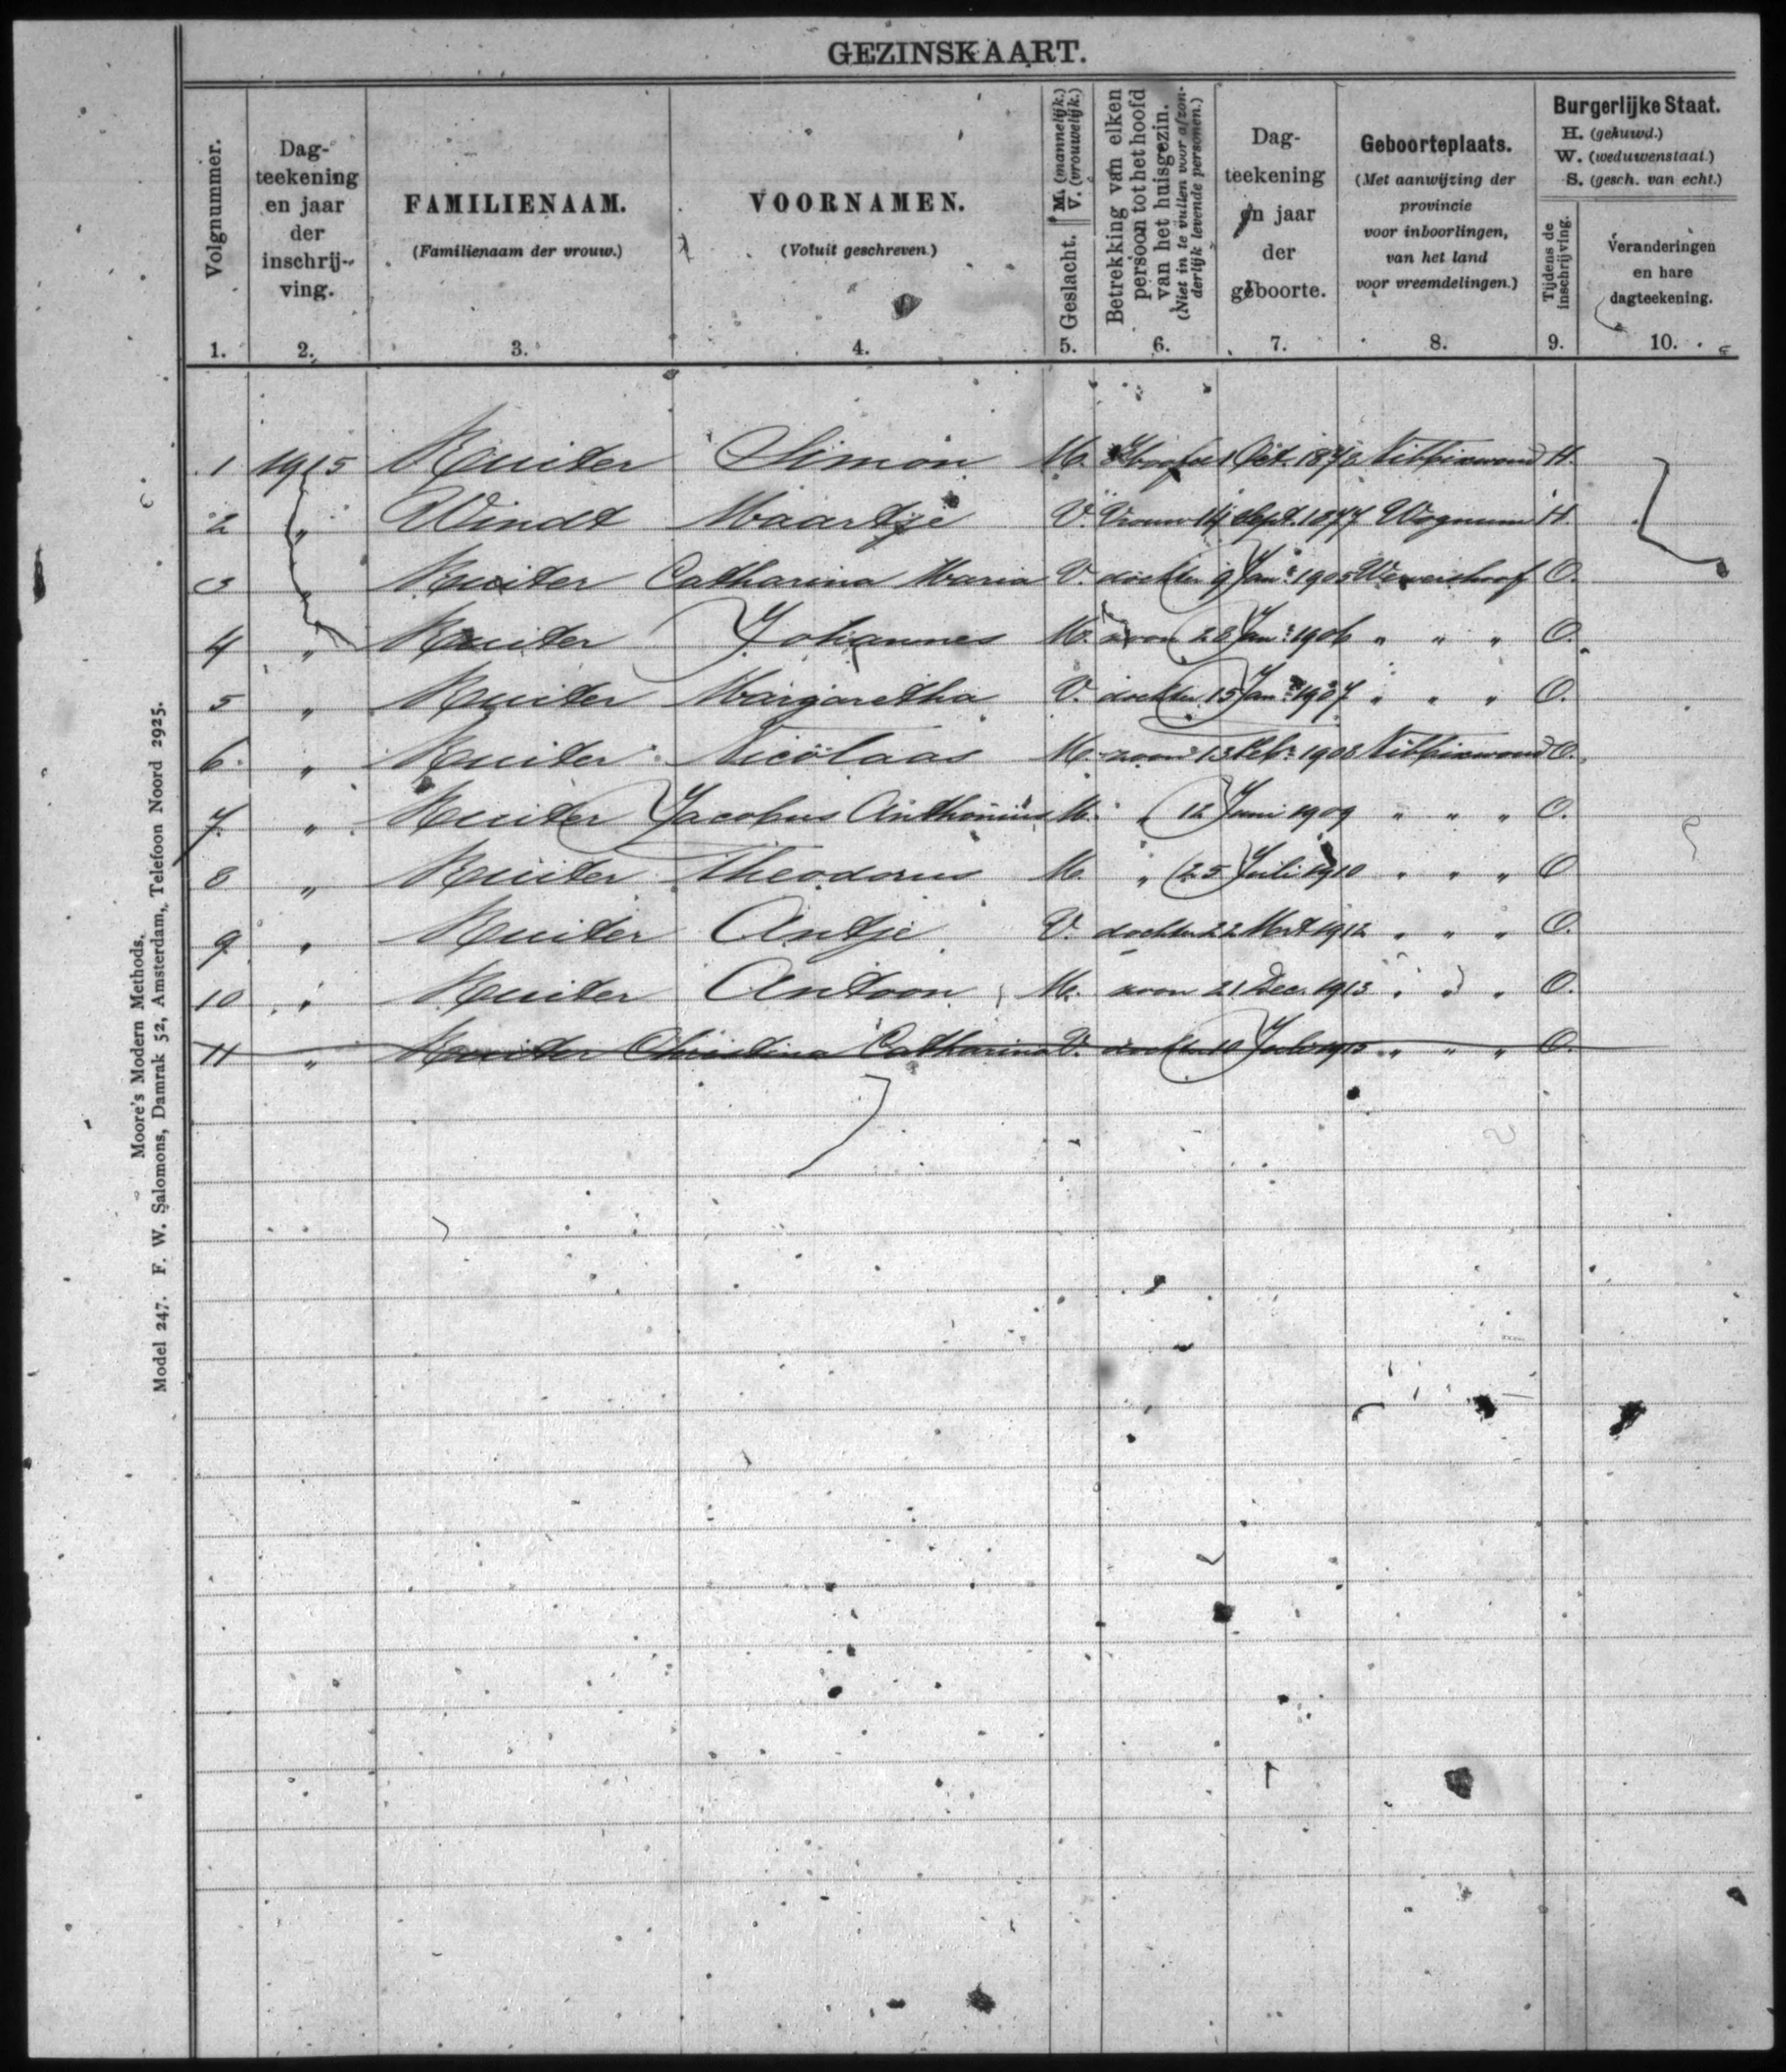 GEZINSKAART.
Volgnummer.
1.
Dag-
teekening
en jaar
der
inschrij-
ving.
2.
FAMILIENAAM.
(Familienaam der vrouw.)
3.
VOORNAMEN.
(Voluit geschreven.)
4.
Geslacht. M. (mannelijk.)
V. (vrouwelijk.)
5.
Betrekking van elken
persoon tot het hoofd
van het huisgezin.
(Niet in te vullen voor afzon-
derlijk levende personen.)
6.
Dag-
teekening
en jaar
der
geboorte.
7.
Geboorteplaats.
(Met aanwijzing der
provincie
voor inboorlingen,
van het land
voor vreemdelingen.)
8.
Burgerlijke Staat.
H. (gehuwd.)
W. (weduwenstaat.)
S. (gesch. van echt.)
Tijdens de
inschrijving.
9.
Veranderingen
en hare
dagteekening.
10.
1 1915 Ruiter Simon M. Hoofd 1 Oct. Nibbixwoud H.
2 " Windt Maartje V. Vrouw 14 Sept. 1877 Wognum H.
3 " Ruiter Catharina Maria V. dochter 9 Jan. 1905 Wervershoof O.
4 " Ruiter Johannes M. zoon Jan. 1906 " " " O.
5 " Ruiter Margaretha V. dochter 15 Jan. 1907 " " " O.
6. " Ruiter Nicolaas M. zoon 13 Feb. 1908 Nibbixwoud O.
7. " Ruiter Jacobus Anthonius M. " 12 Juni 1909 " " " O.
8 " Ruiter Theodorus M. " 25 Juli 1910 " " " O
9 " Ruiter Antje V. dochter 22 Mrt 1912 " " " O.
10 " Ruiter Antoon M. zoon 21 Dec. 1913 " " " O.
11 " Ruiter Christina Catharina V. dochter 10 Juli 1915 " " " O.
Moore's Modern Methods.
Model 247. F. W. Salomons, Damrak 52, Amsterdam, Telefoon Noord 2925.